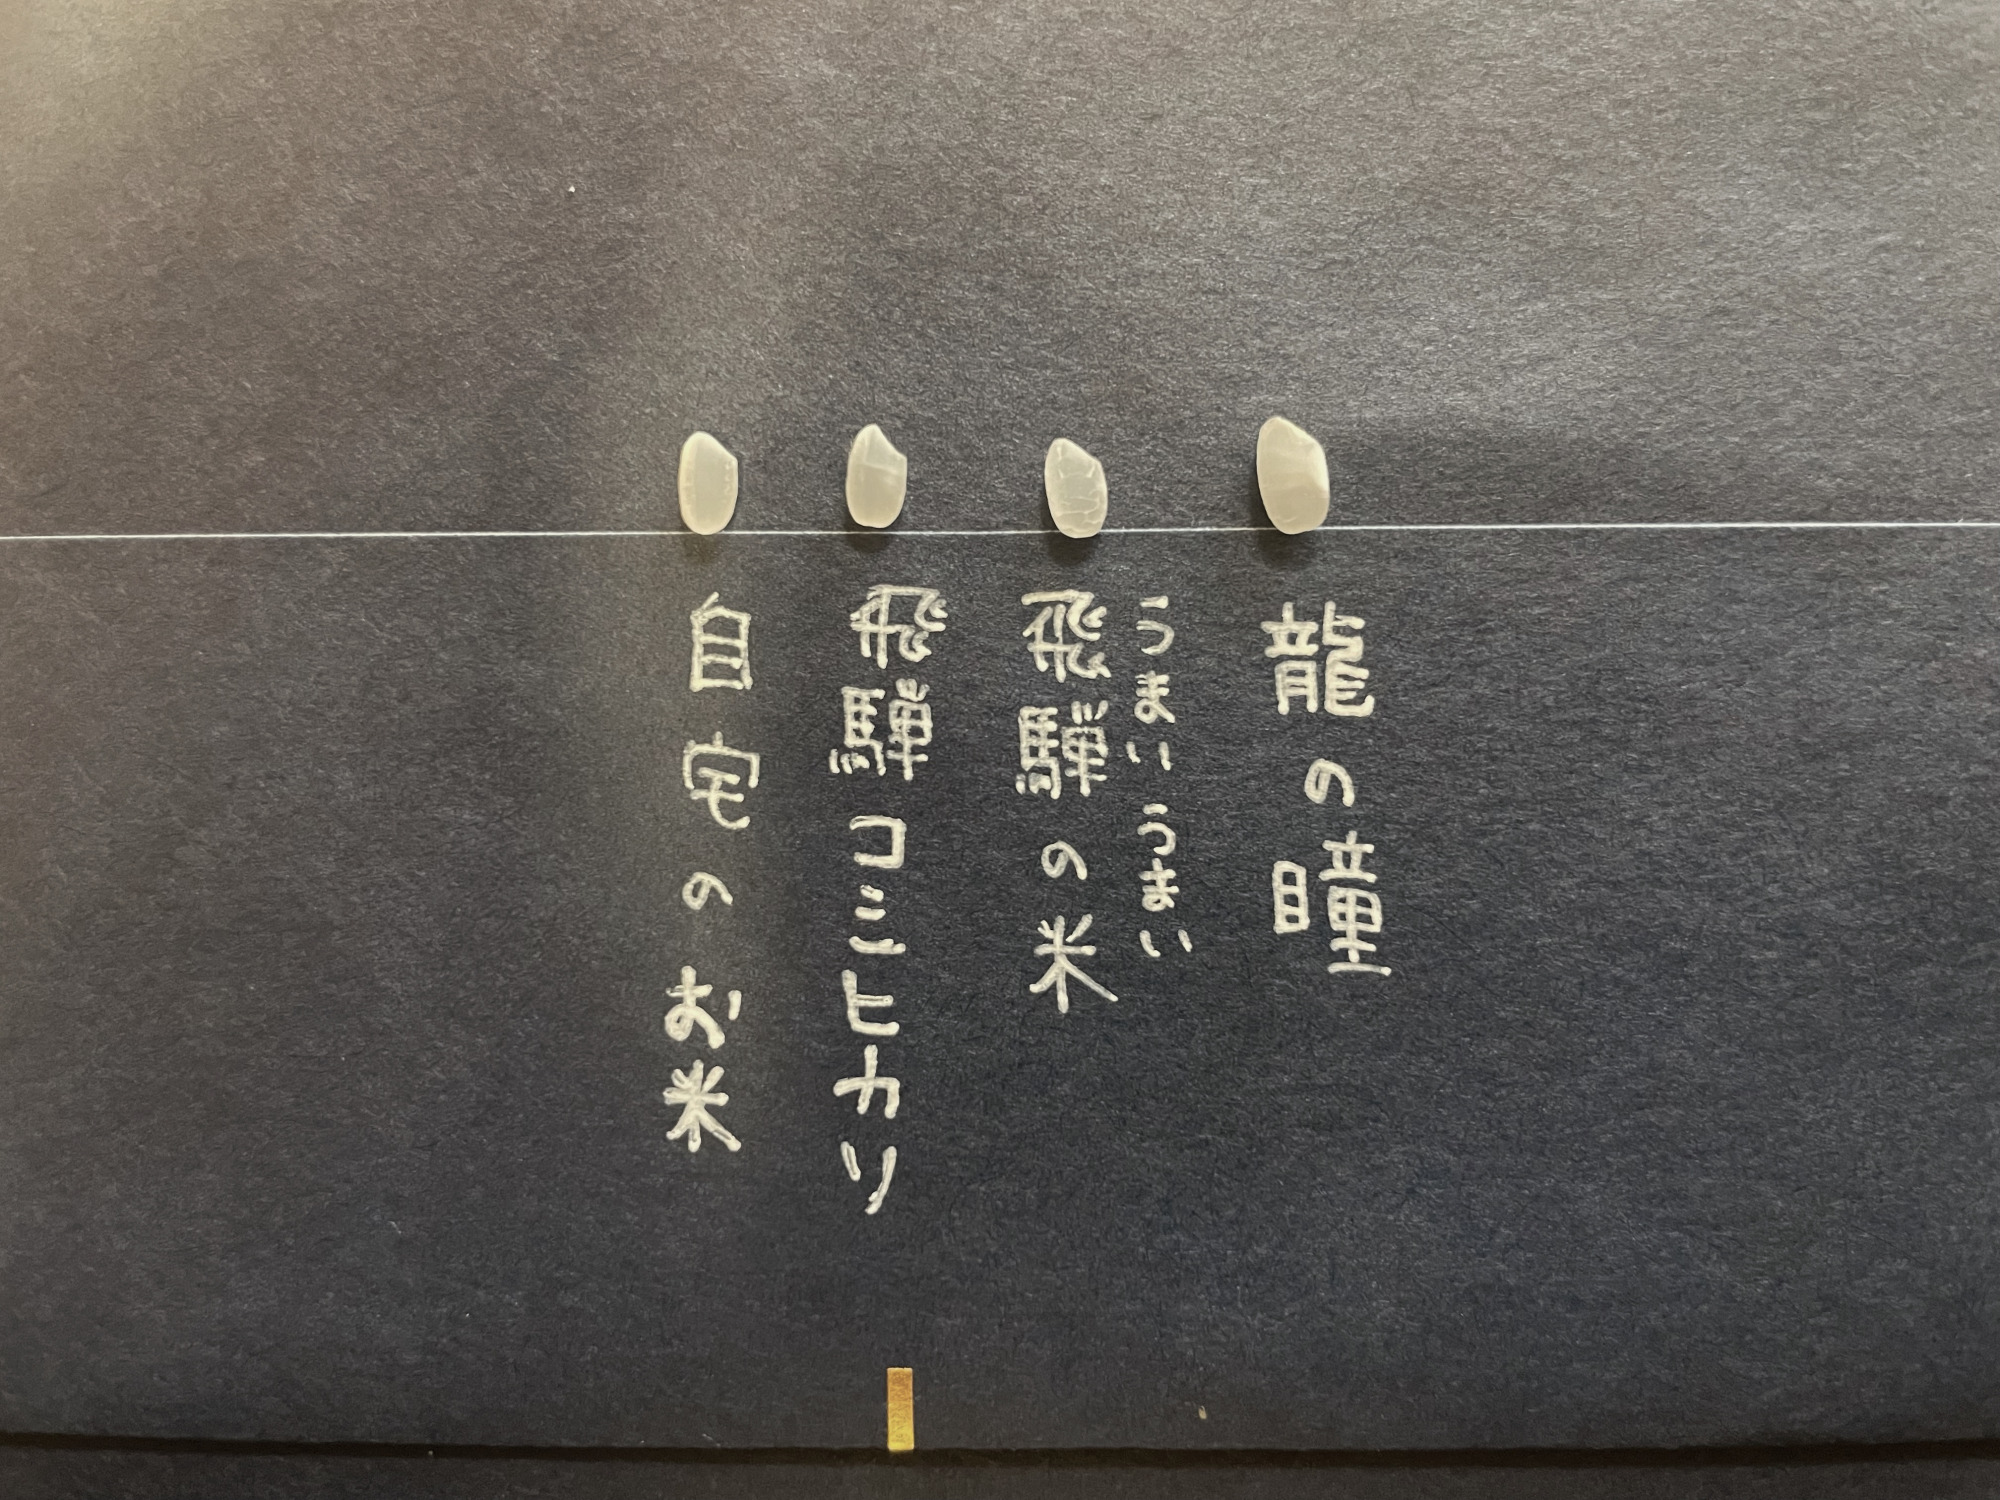 龍の瞳
うまいうまい
飛騨の米
飛騨コシヒカリ
自宅のお米